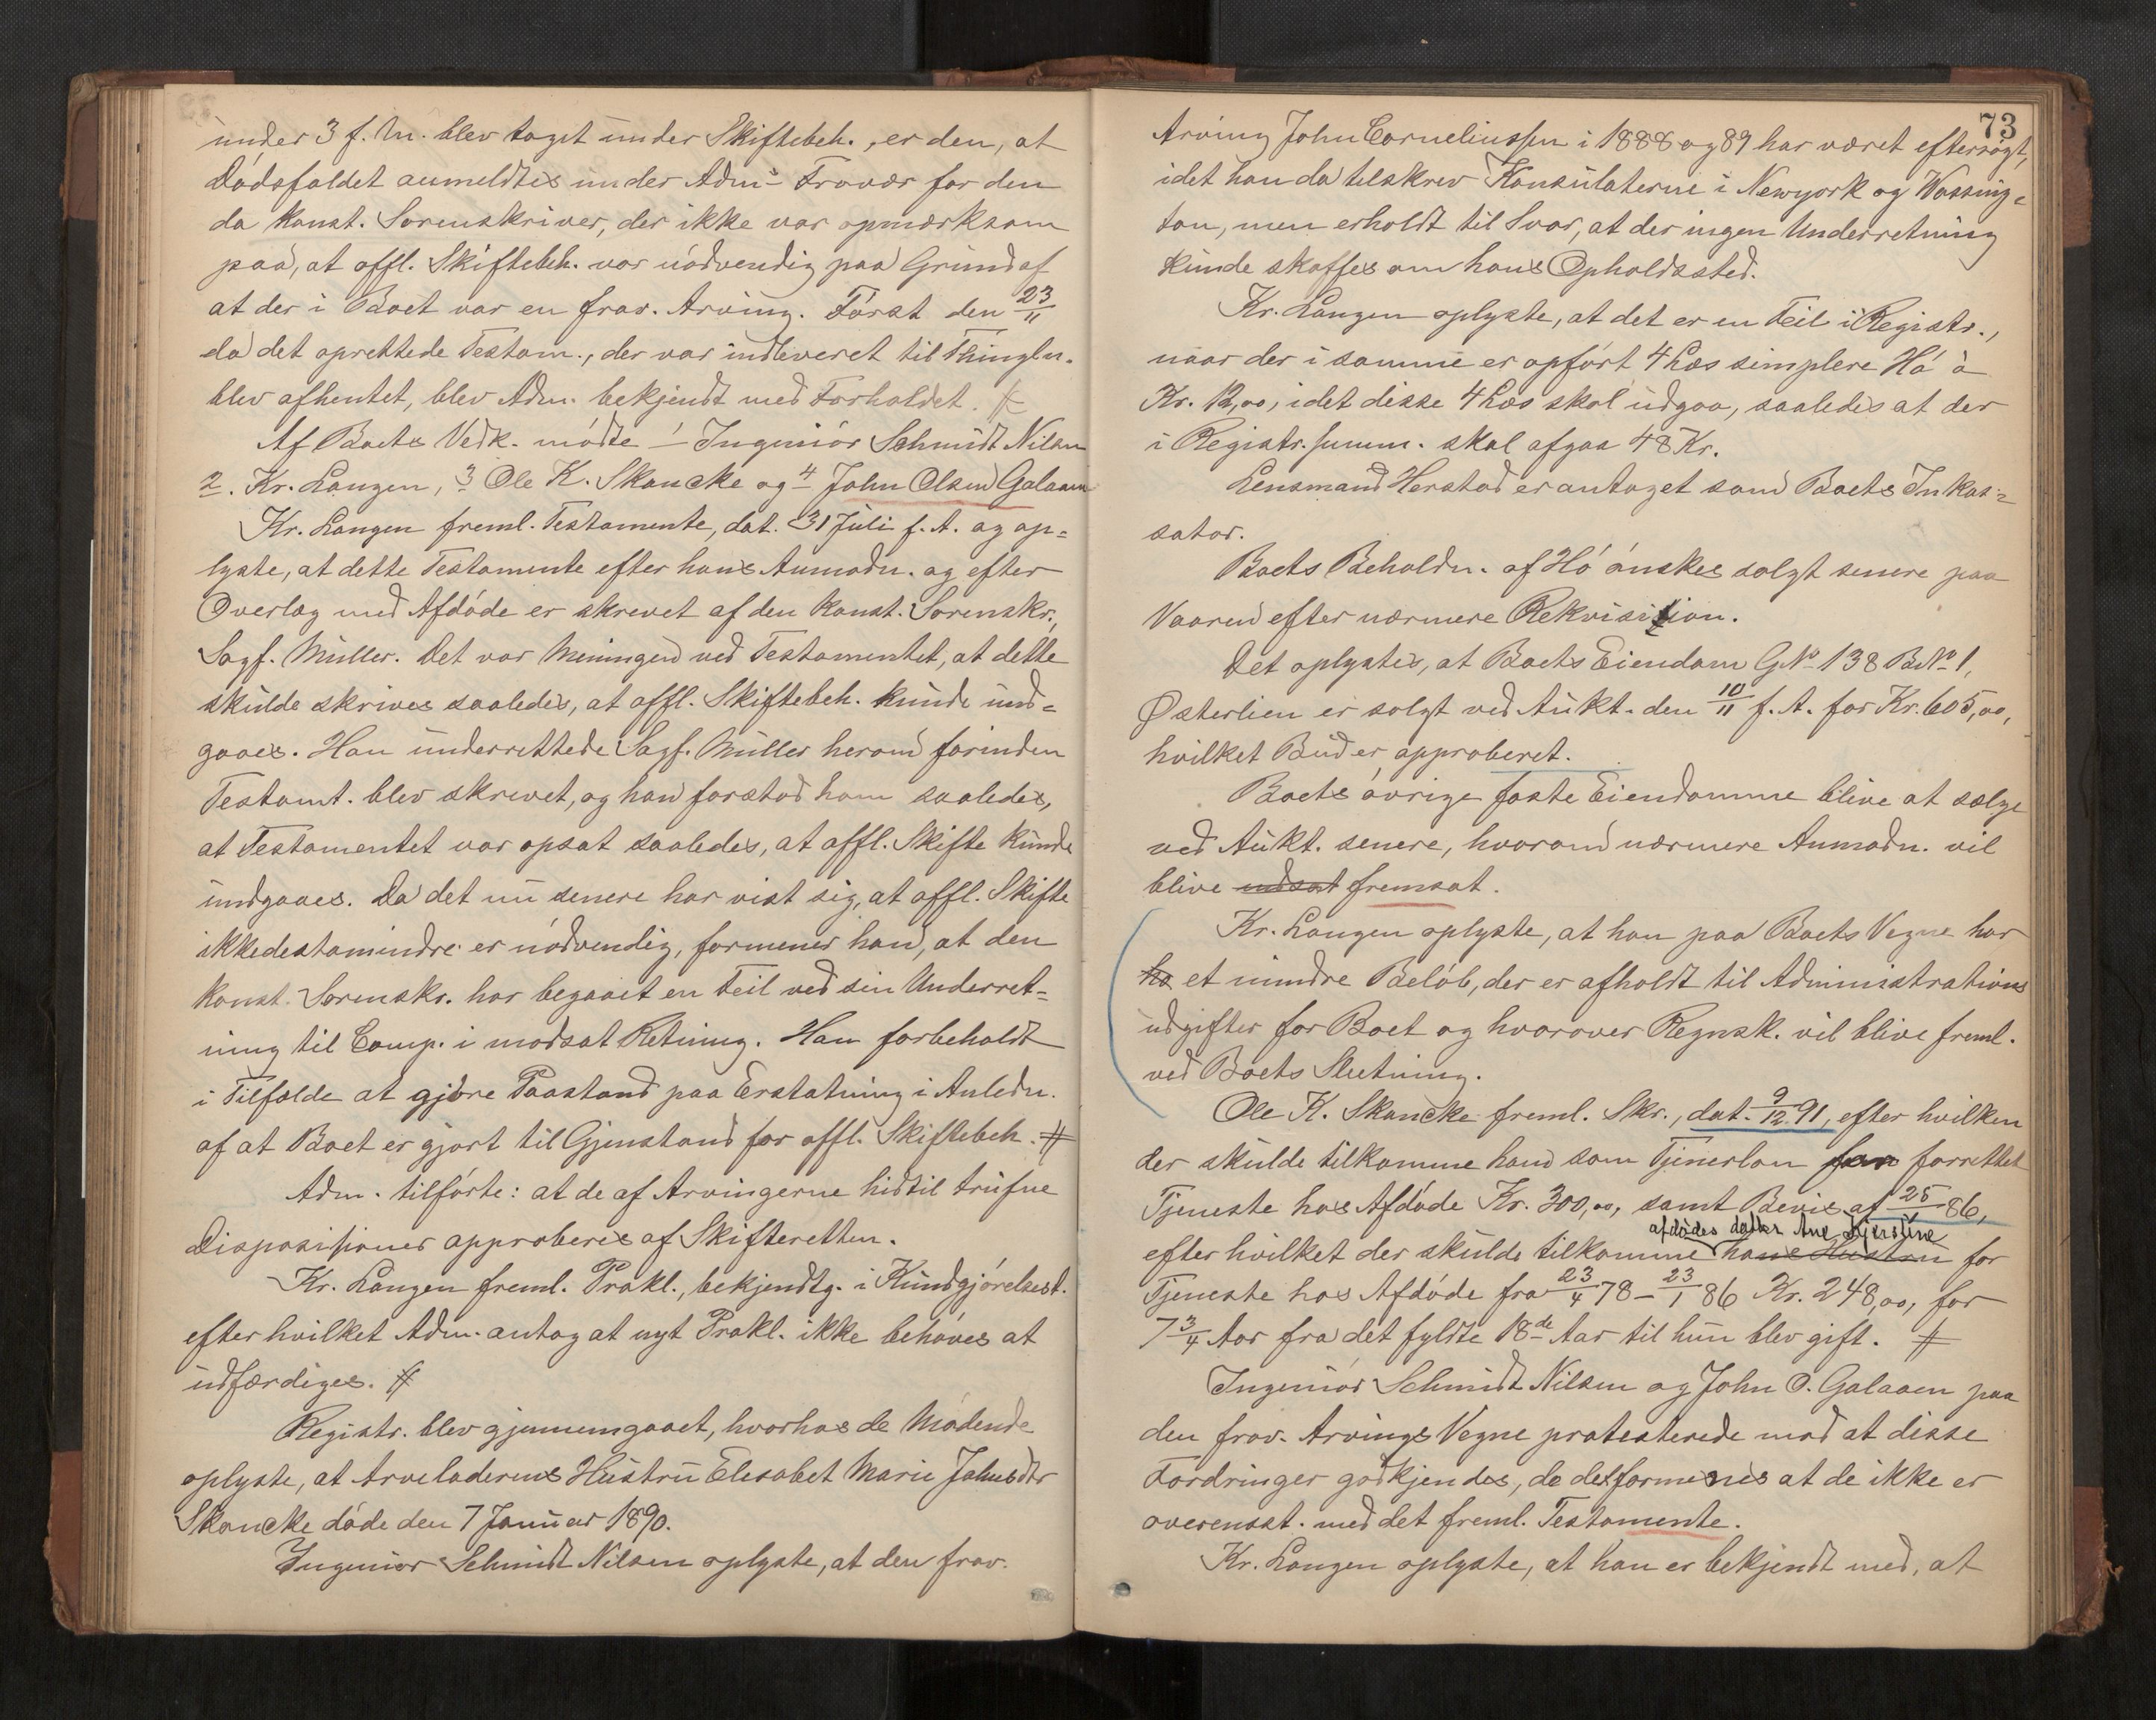 under 3 f. M. blev taget under Skiftebeh., er den, at
Dødsfaldet anmeldtes under Adm.s Fravær for den
da konst. Sorenskriver, der ikke var opmærksom
paa, at offl. Skiftebeh. var nødvendig paa Grund af
at der i Boet var en frav. Arving. Først den 23/11
da det oprettede Testam., der var indleveret til Thingln.
blev afhentet, blev Adm. bekjendt med Forholdet. #
Af Boets Vedk. mødte 1 Ingeniør Schmidt Nilsen
2. Kr. Langen, 3 Ole K. Skancke og 4 John Olsen Galaaen
Kr. Langen freml. Testamente, dat. 31 Juli f. A. og op=
lyste, at dette Testamente efter hans Anmodn. og efter
Overlæg med Afdøde er skrevet af den konst. Sorenskr.,
Sagf. Müller. Det var Meningen ved Testamentet, at dette
skulde skrives saaledes, at offl. Skiftebeh. kunde und=
gaaes. Han underrettede Sagf. Müller herom forinden
Testamt. blev skrevet, og han forstod ham saaledes,
at Testamentet var opsat saaledes, at offl. Skifte kunde
undgaaes. Da det nu senere har vist sig, at offl. Skifte
ikkedestomindre er nødvendig, formener han, at den
konst. Sorenskr. har begaaet en Feil ved sin Underret=
ning til Comp. i modsat Retning. Han forbeholdt
i Tilfælde at gjøre Paastand paa Erstatning i Anledn.
af at Boet er gjort til Gjenstand for offl. Skiftebeh. #
Adm. tilførte: at de af Arvingerne hidtil trufne
Dispositioner approberes af Skifteretten.
Kr. Langen freml. Prokl., bekjendtg. i Kundgjørelsest.
efter hvilket Adm. antog at nyt Prokl. ikke behøves at
udfærdiges. #
Registr. blev gjennemgaaet, hvorhos de Mødende
oplyste, at Arveladerens Hustru Elesabet Marie Johnsdtr
Skancke døde den 7 Januar 1890.
Ingeniør Schmidt Nilsen oplyste, at den frav.
73
Arving John Corneliussen i 1888 og 89 har været eftersøgt,
idet han da tilskrev Konsulaterne i Newyork og Wassing=
ton, men erholdt til Svar, at der ingen Underretning
kunde skaffes om hans Opholdssted.
Kr. Langen oplyste, at det er en Feil i Registr.,
naar der i samme er opført 4 Læs simplere Hø à
Kr. 12,00, idet disse 4 Læs skal udgaa, saaledes at der
i Registr. summ. skal afgaa 48 Kr.
Lensmand Herstad er antaget som Boets Inkas=
sator.
Boets Beholdn. af Hø ønskes solgt senere paa
Vaaren efter nærmere Rekvisition.
Det oplystes, at Boets Eiendom GNo 138 BNo 1,
Østerlien er solgt ved Aukt. den 10/11 f. A. for Kr. 605,00,
hvilket Bud er approberet.
Boets øvrige faste Eiendomme blive at sælge
ved Aukt. senere, hvorom nærmere Anmodn. vil
blive udsat fremsat.
Kr. Langen oplyste, at han paa Boets Vegne har
ha et mindre Beløb, der er afholdt til Administrations
udgifter for Boet og hvorover Regnsk. vil blive freml.
ved Boets Slutning.
Ole K. Skancke freml. Skr., dat. 9/12 91, efter hvilken
der skulde tilkomme ham som Tjenerløn for forrettet
Tjeneste hos Afdøde Kr. 300,00, samt Bevis af 25/1 86,
afdødes datter Ane Kjerstine
efter hvilket der skulde tilkomme hans Hustru for
Tjeneste hos Afdøde fra 23/4 78 – 23/1 86 Kr. 248,00, for
7 3/4 Aar fra det fyldte 18de Aar til hun blev gift. #
Ingeniør Schmidt Nilsen og John O. Galaaen paa
den frav. Arvings Vegne protesterede mod at disse
Fordringer godkjendes, da det formenes at de ikke er
overensst. med det freml. Testamente.
Kr. Langen oplyste, at han er bekjendt med, at